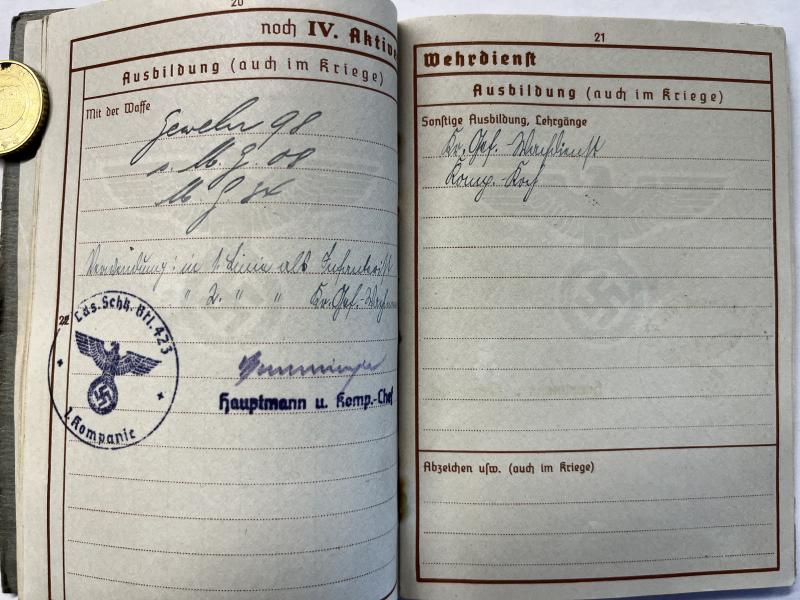 20
noch IV. Aktive
Ausbildung (auch im Kriege)
Mit der Waffe
Gewehr 98
u. M. G. 08
M. G. 34
Verwendung: in 1 Linie als Infanterist
" 2. " " Kr. Gef.-
22
Lds. Schtz. Btl. 423
1. Kompanie
Hauptmann u. Komp.-Chef
21
Wehrdienst
Ausbildung (auch im Kriege)
Sonstige Ausbildung, Lehrgänge
Kr. Gef.-Wachdienst
Komp.-Koch
Abzeichen usw. (auch im Kriege)